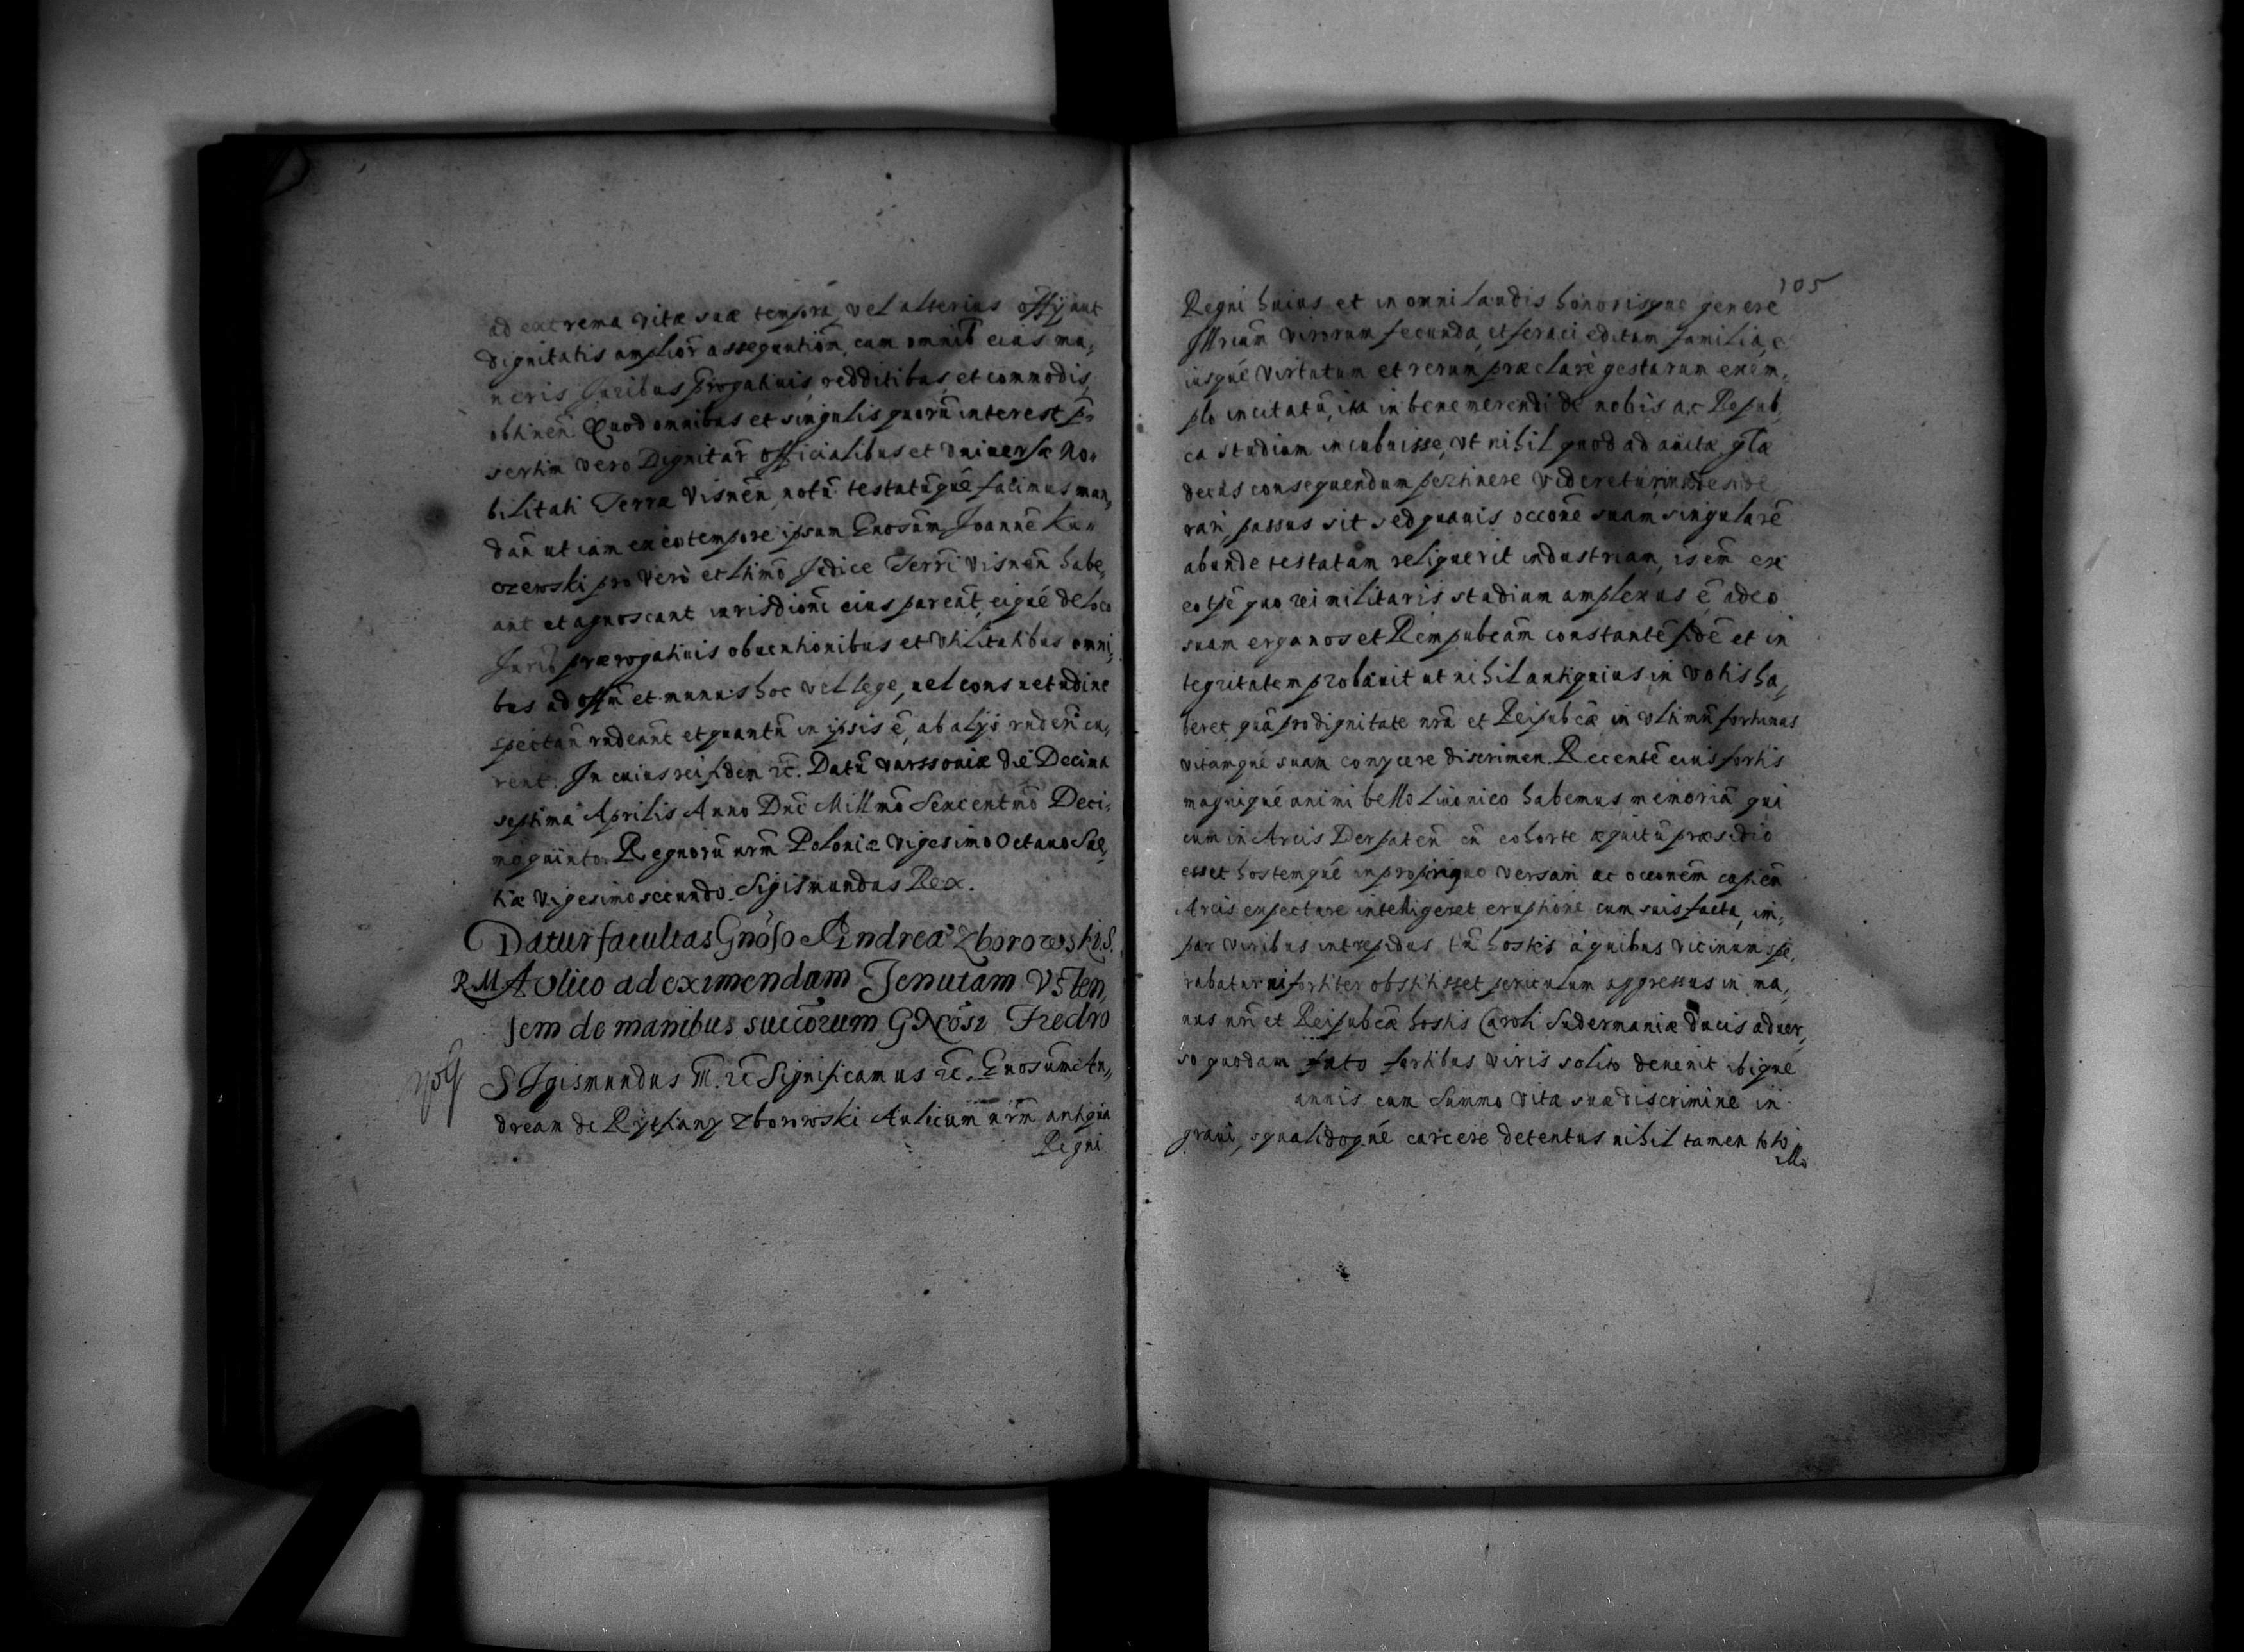 ad extrema vitæ suæ tempora, vel alterius offÿ aut
dignitatis amplior̃ assequutionẽ, cum omnib̃ eius mu,
neris Juribus p̃rogatiuis, redditibus, et commodis,
obtinen̄. Quod omnibus et singulis quorũ interest p̃,
sertim vero Dignitar̃ officialibus et vniuersæ No,
bilitati Terræ Visnen̄, notũ testatũqué facimus man,
dan̄ ut iam ex eo tempore ipsum Gnosũm Joannẽ Ku,,
czewski pro vero et ltimõ Judice Terr̃i Visnen̄ habe,
ant et agnoscant iurisdioni eius pareãnt, eiqué de loco
Jurib̃ prærogatiuis obuentionibus et vtilitatibus omni,
bus ad offũ et munus hoc vel lege, uel consuetudine
spectan̄ rndeãnt et quantũ in ipsis ẽ, ab alÿs rnderi cu,
rent. In cuius rei fidem ꝛc̃. Datũ Varssouiæ die Decima
septima Aprilis Anno Dnĩ Millmõ Sexcentmõ Deci,
moquinto. Regnorũ nrm̃ Poloniæ Vigesimo Octauo Sue,
tiæ Vigesimo secundo. Sigismundus Rex.
Datur facultas Gnõso Andreæ Zborowski S.
R. M. Aulico ad eximendam Tenutam Vsten,
sem de manibus succõrum GNrõsi Fredro
SIgismundus III. ꝛc̃ Significamus ꝛc̃. Gnosũm An,,
dream de Rytfiany Zborowski Aulicum nrm̃ antiqua
Regni
105
Regni huius et in omni laudis honorisque genere
Jllrium̃ virorum fecunda, et feraci editum familia, e
iusqué virtutum et rerum præclarè gestarum exem,
plo incitatũ, ita in bene merendi de nobis ac Repub,
ca studium incubuisse, vt nihil quod ad auitæ glæ
decus consequendum pertinere videretur, in se deside
rari, passus sit sed quauis occõne suam singularẽ
abunde testatam reliquerit industriam, is em̃ ex
eo tp̃e quo rei militaris studium amplexus ẽ adeo
suam erga nos et Rempubcam̃ constantẽ fidẽ et in
tegritatem probauit ut nihil antiquius in votis ha,
beret quã pro dignitate nrã et Reipubcæ in vltimũ fortunas
vitamqué suam conÿcere discrimen. Recentẽ eius fortis
magniqué animi bello Liuonico habemus memoriã qui
cum in Arcis Derpaten̄ cũ cohorte æquitũ præsidio
esset hostemqué in propinquo versari ac occõnem capien̄
Arcis expectare intelligeret eruptione cum suis facta, im,
par viribus intrepidus tñ hostis á quibus vicinum spe,
rabatur ni fortiter obstitisset periculum aggressus in ma,
nus nri et Reipubcæ hostis Caroli Sudermaniæ Ducis aduer,
so quodam fato fortibus viris solito deuenit ibique
annis cum summo vitæ suæ discrimine in
graui, squalidoqué carcere detentus nihil tamen toto
illo